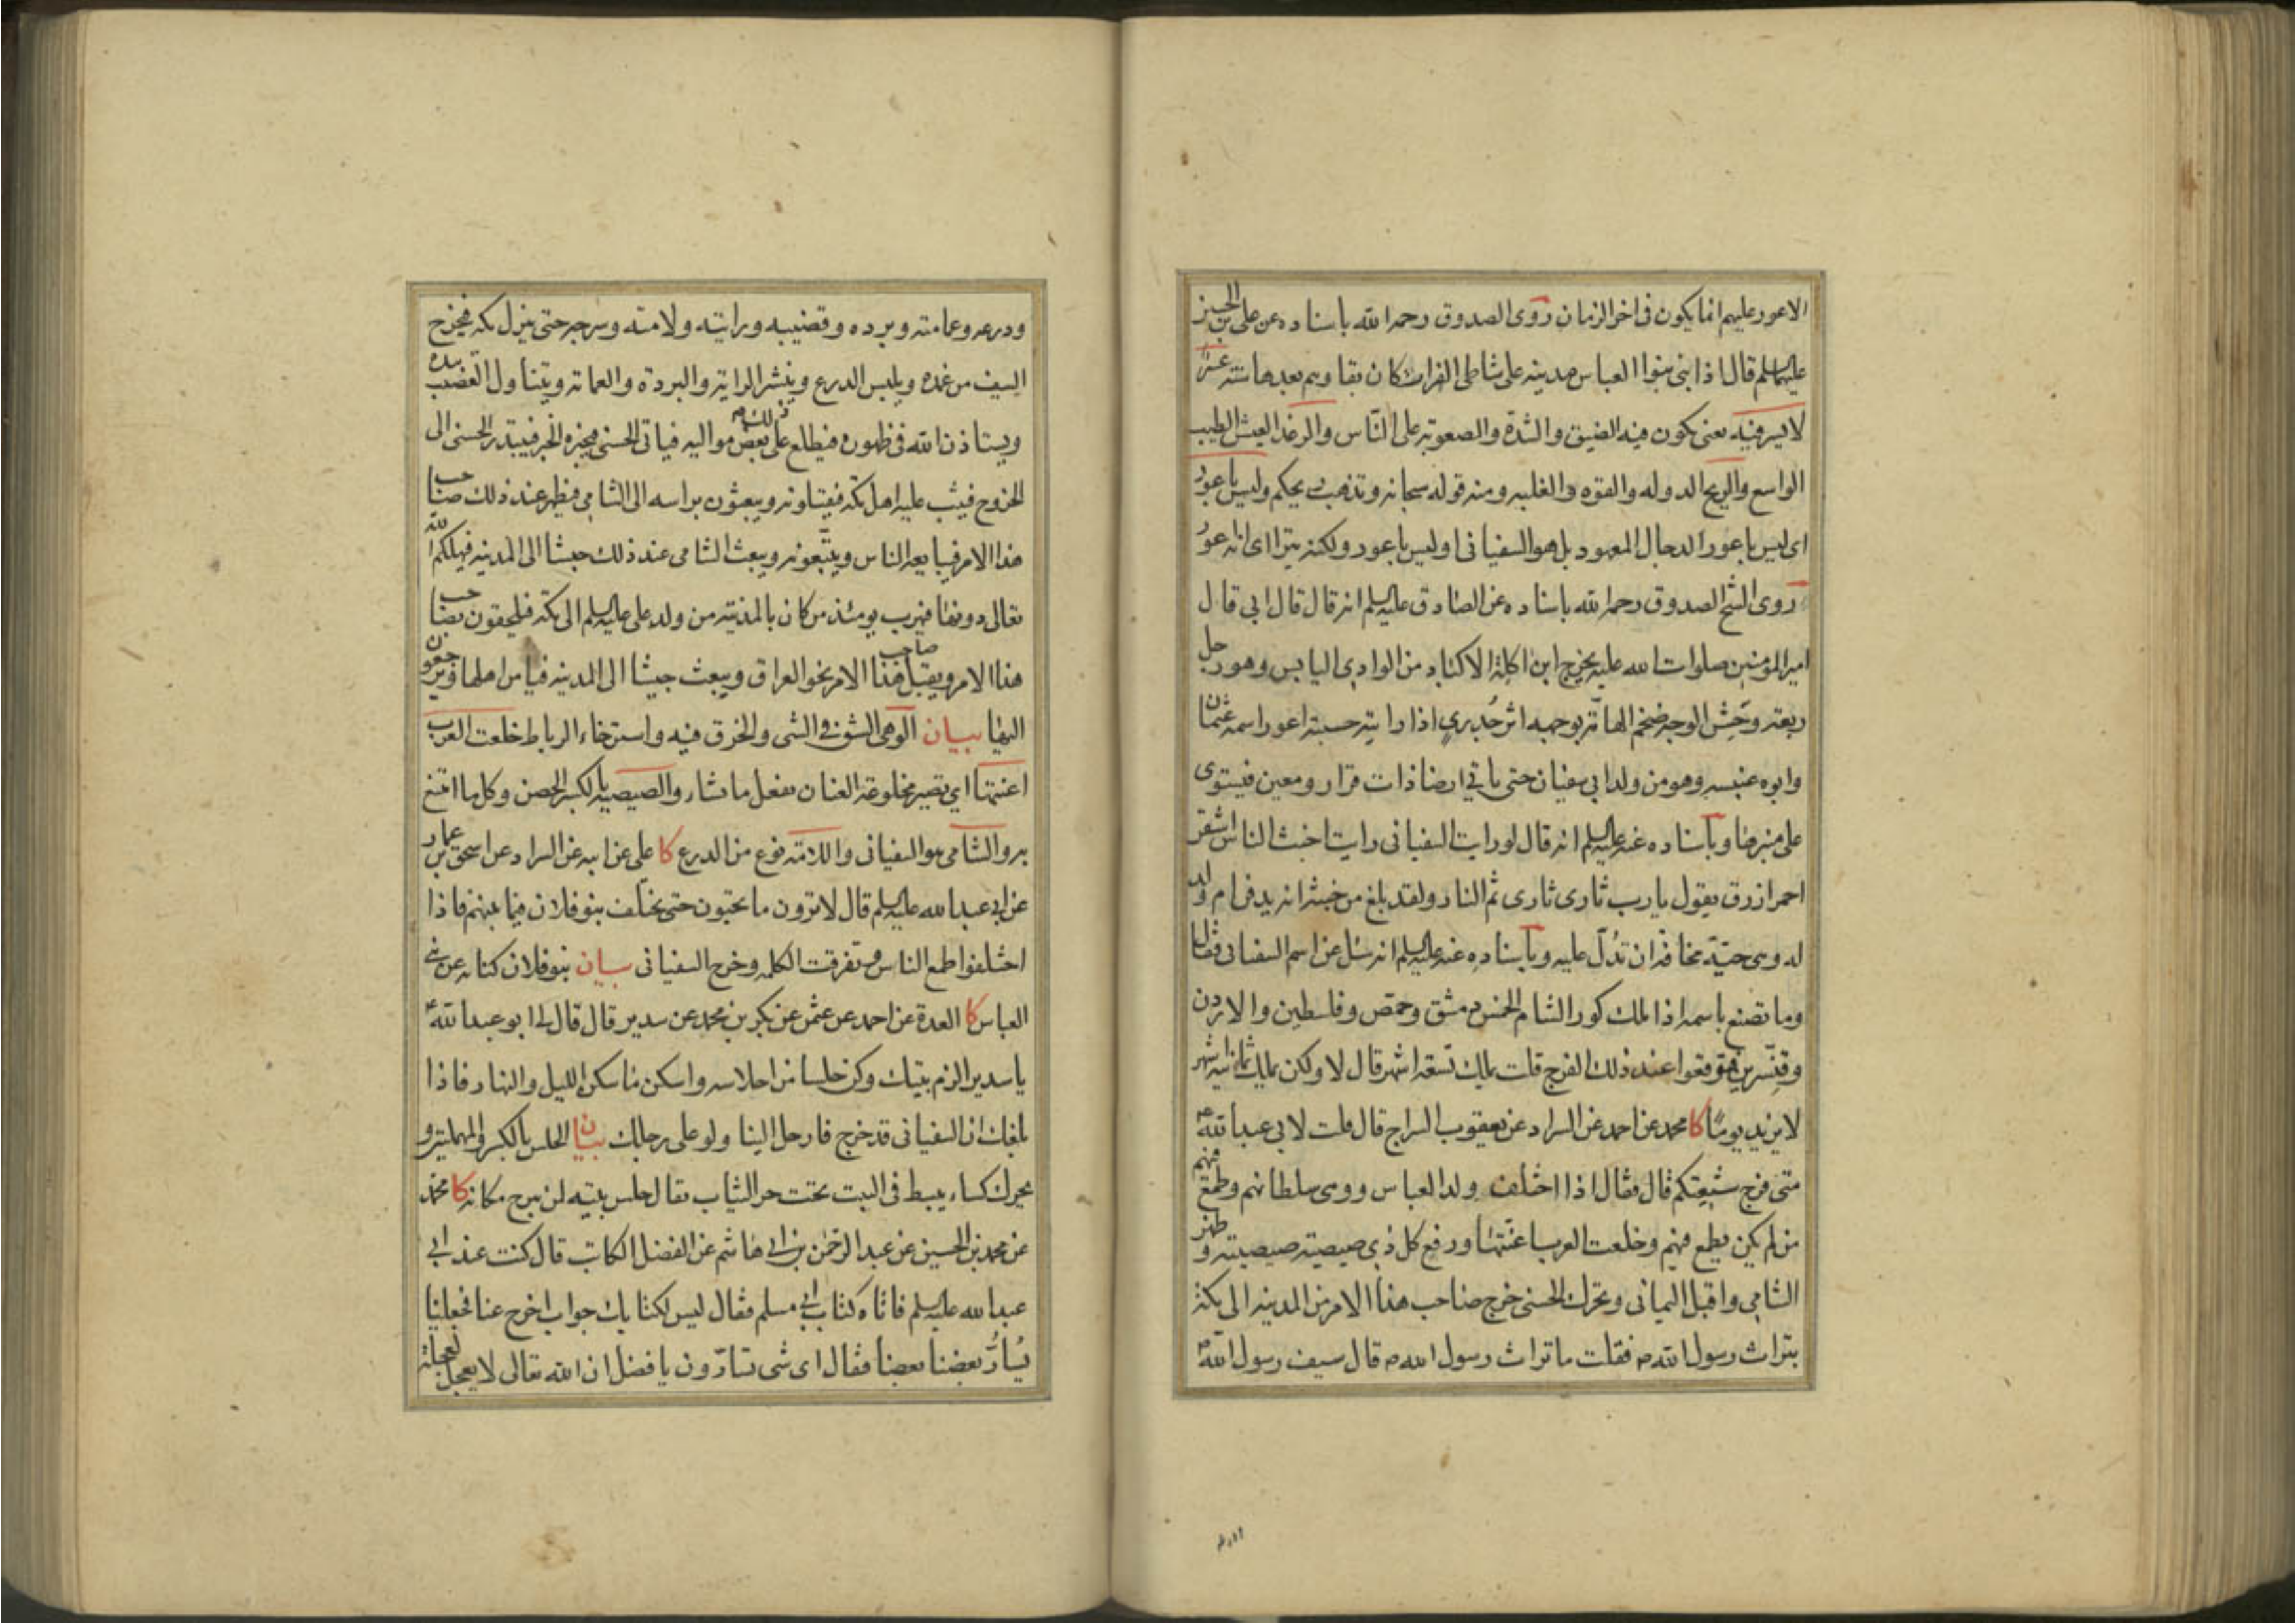 الاعور عليهم انما يكون في اخر الزمان روى الصدوق رحمه الله باسناده عن علي بن الحسين
عليهما السلم قال اذا بنى بنوا العباس مدينه على شاطى الفرات كان بقاوهم بعدها سنه
لا يسر فيه يعنى يكون فيه الضيق والشدة والصعوبة على الناس والرغد العيش الطيب
الواسع والريح الدوله والقوه والغلبه ومنه قوله سبحانه وتذهب ريحكم وليس باعور
اى ليس باعور الدجال المعهود بل هو السفيانى او ليس باعور ولكنه يتراأى انه اعور
روى الشيخ الصدوق رحمه الله باسناده عن الصادق عليه السلم انه قال قال ابى قال
امير المؤمنين صلوات الله عليه يخرج ابن اكلة الاكباد من الوادى اليابس وهو رجل
ربعة وحش الوجه ضخم الهامّة بوجهه اثر جُدري اذا رايته حسبته اعور اسمه عثمان
وابوه عنبسه وهو من ولد ابى سفيان حتى ياتى ارضا ذات قرار ومعين فيستوى
على منبرها وبأسناده عنه عليه السلم انه قال لو رايت السفيانى رايت اخبث الناس اشقر
احمر ازرق يقول يا رب ثارى ثارى ثم النار ولقد بلغ من خبثه انه يدفن ام ولد
له وهى حيّة مخافة ان تدُلّ عليه وبأسناده عنه عليه السلم انه سئل عن اسم السفيانى فقال
وما تصنع باسمه اذا ملك كور الشام الخمس دمشق وحمص وفلسطين والاردن
وقنّسرين فتوقعوا عند ذلك الفرج قلت يملك تسعة اشهر قال لا ولكن يملك ثمانيه اشهر
لا يزيد يومًا كا محمد عن احمد عن السراد عن يعقوب السراج قال قلت لابى عبد الله ع
متى فرج شيعتكم قال فقال اذا اختلف ولد العباس ووهى سلطانهم وطمع فيهم
من لم يكن يطمع فيهم وخلعت العرب اعنّتها ورفع كل ذى صيصية صيصيته وظهر
الشامى واقبل اليمانى وتحرك الحسنى خرج صاحب هذا الامر من المدينه الى مكة
بتراث رسول الله ص فقلت ما تراث رسول الله ص قال سيف رسول الله ص
ودرعه وعمامته وبرده وقضيبه ورايته ولامته وسرجه حتى ينزل مكه فيخرج
السيف من غمده ويلبس الدرع وينشر الراية والبردة والعمامة ويتناول القضيب بيده
ويستاذن الله فى ظهوره فيطلع على ذلك بعض مواليه فياتى الحسنى فيخبره الخبر فيبتدر الحسنى الى
الخروج فيثب عليه اهل مكّه فيقتلونه ويبعثون براسه الى الشامى فيظهر عند ذلك صاحب
هذا الامر فيبايعه الناس ويتّبعونه ويبعث الشامى عند ذلك جيشا الى المدينه فيهلكهم الله
تعالى دونها فيهرب يومئذ من كان بالمدينة من ولد على عليه السلم الى مكّة فيلحقون بصاحب
هذا الامر ويقبل صاحب هذا الامر نحو العراق ويبعث جيشا الى المدينه فيامن اهلها ويرجعون
اليها بيان الوهى الشق فى الشى والخرق فيه واسترخاء الرباط خلعت العرب
اعنتها اي تصير مخلوعة العنان تفعل ما تشاء والصيصيه بالكسر الحصن وكل ما امتنع
به والشامى هو السفيانى واللامة نوع من الدرع كا على عن ابيه عن السراد عن اسحق بن عمار
عن ابى عبد الله عليه السلم قال لا ترون ما تحبون حتى يختلف بنو فلان فيما بينهم فاذا
اختلفوا طمع الناس وتفرقت الكلمه وخرج السفيانى بيان بنو فلان كنايه عن بنى
العباس كا العدة عن احمد عن عثمن عن بكر بن محمد عن سدير قال قال لى ابو عبد الله ع
يا سدير الزم بيتك وكن حلسا من احلاسه واسكن ما سكن الليل والنهار فاذا
بلغك ان السفيانى قد خرج فارحل الينا ولو على رجلك بيان الحلس بالكسر والمهملتين و
يحرك كساء يبسط فى البيت تحت حر الثياب يقال حلس بيته لمن لم يبرح مكانه كا محمد
عن محمد بن الحسين عن عبد الرحمن بن ابى هاشم عن الفضل الكاتب قال كنت عند ابى
عبد الله عليه السلم فاتاه كتاب ابى مسلم فقال ليس لكتابك جواب اخرج عنا فجعلنا
يُسارُّ بعضنا بعضا فقال اى شى تسارّون يا فضل ان الله تعالى لا يعجل لعجلة